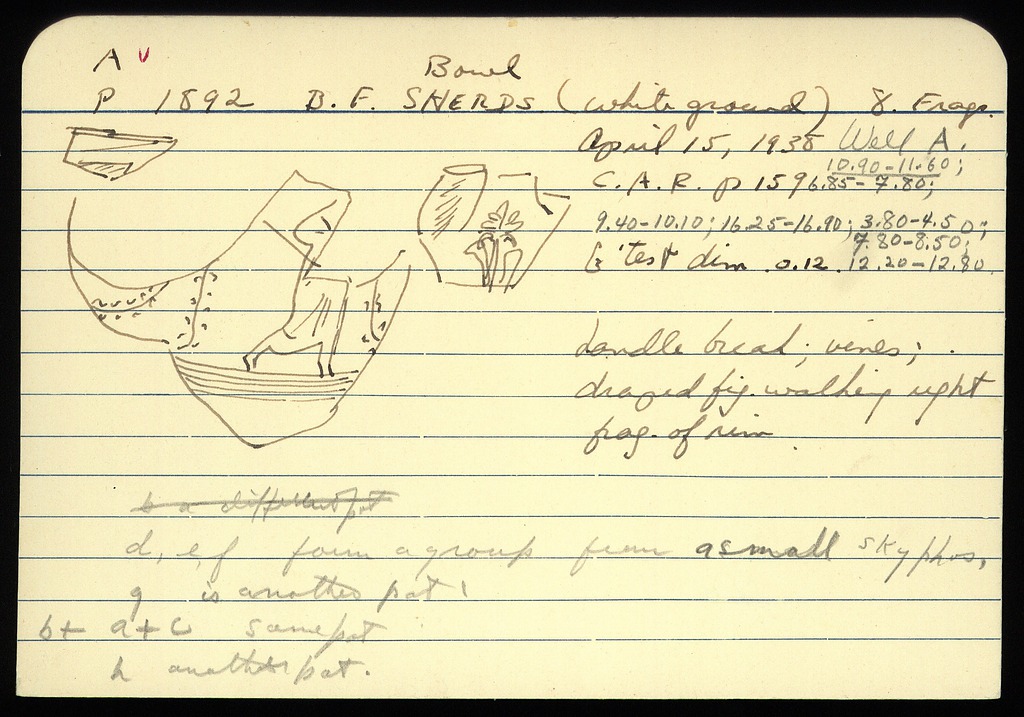 A v
Bowl
P 1892 B.F. SHERDS (white ground) 8. Frags.
April 15, 1935 Well A.
10.90-11.60;
C.A.R. p 159 6.85-7.80;
9.40-10.10; 16.25-16.90; 3.80-4.50;
7.80-8.50;
G'test dim 0.12. 12.20-12.80
handle break; vines;
draped fig. walking right
frag. of rim
b a different pot
d, e, f form a group from a small skyphos,
g is another pot!
b+ a+c same pot
h another pot.